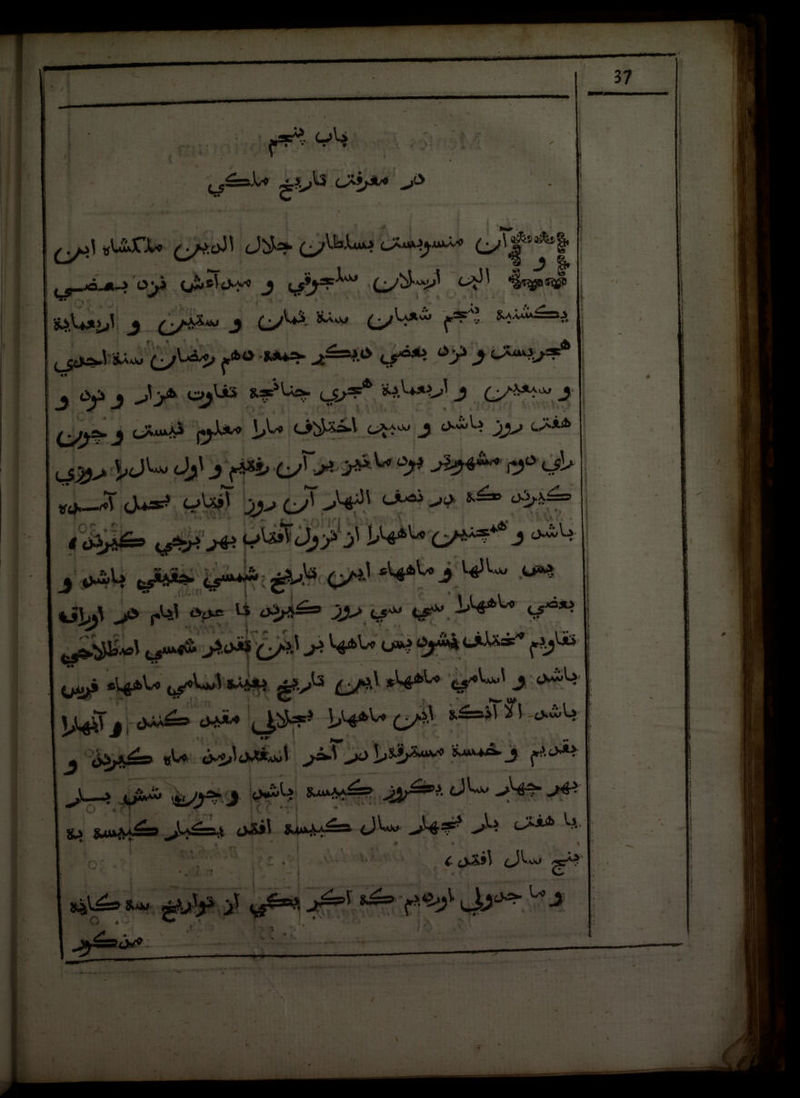 37
باب پنجم
در معرفت تاریخ ملکی
و آن منسوبست بسلطان جلال الدین ملکشاه ابن
الب ارسلان سلجوقی و مبدآءش نزد بعضی
یکشنبه پنجم شعبان سنة ثمان و ستین و اربعمایة
هجریست و نزد بعضی دیگر جمعه دهم رمضان سنة احدی
و سبعین و اربعمایة هجری چنانچه تفاوت هزار و نود و
هفت روز باشد و سبب اختلاف مارا معلوم نیست و چون
رای دوم مشهورتر بود ما نیز بر آن رفتیم و اول سالرا روزی
گیرند که در نصف النهار آن روز آفتاب بحمل آمده
باشد و همچنین ماههارا از نزول آفتاب بهر برجی گیرند
پس سالها و ماههاء این تاریخ شمسی حقیقی باشد و
بعضی ماههارا سی سی روز گیرند تا عدد ایام در اوراق
تقاویم مختلف نشود پس ماهها بر این تقدیر شمسی اصطلاحی
باشد و اسامی ماههاء این تاریخ بعینه اسامی ماههاء فرس
باشد الا آنکه این ماههارا بجلالی مقید کنند و آنهارا
بقدیم و خمسة مسترقه را در آخر اسفندارمذ ماه گیرند و
بهر چهار سال یکروز کبیسه باشد و چون شش بار
یا هفت بار بچهار سال کبیسه افتد یکبار کبیسه به
پنج سال افتد
و ما جدولی اوردیم که اگر یکی از تواریخ سه گانه
مذکور